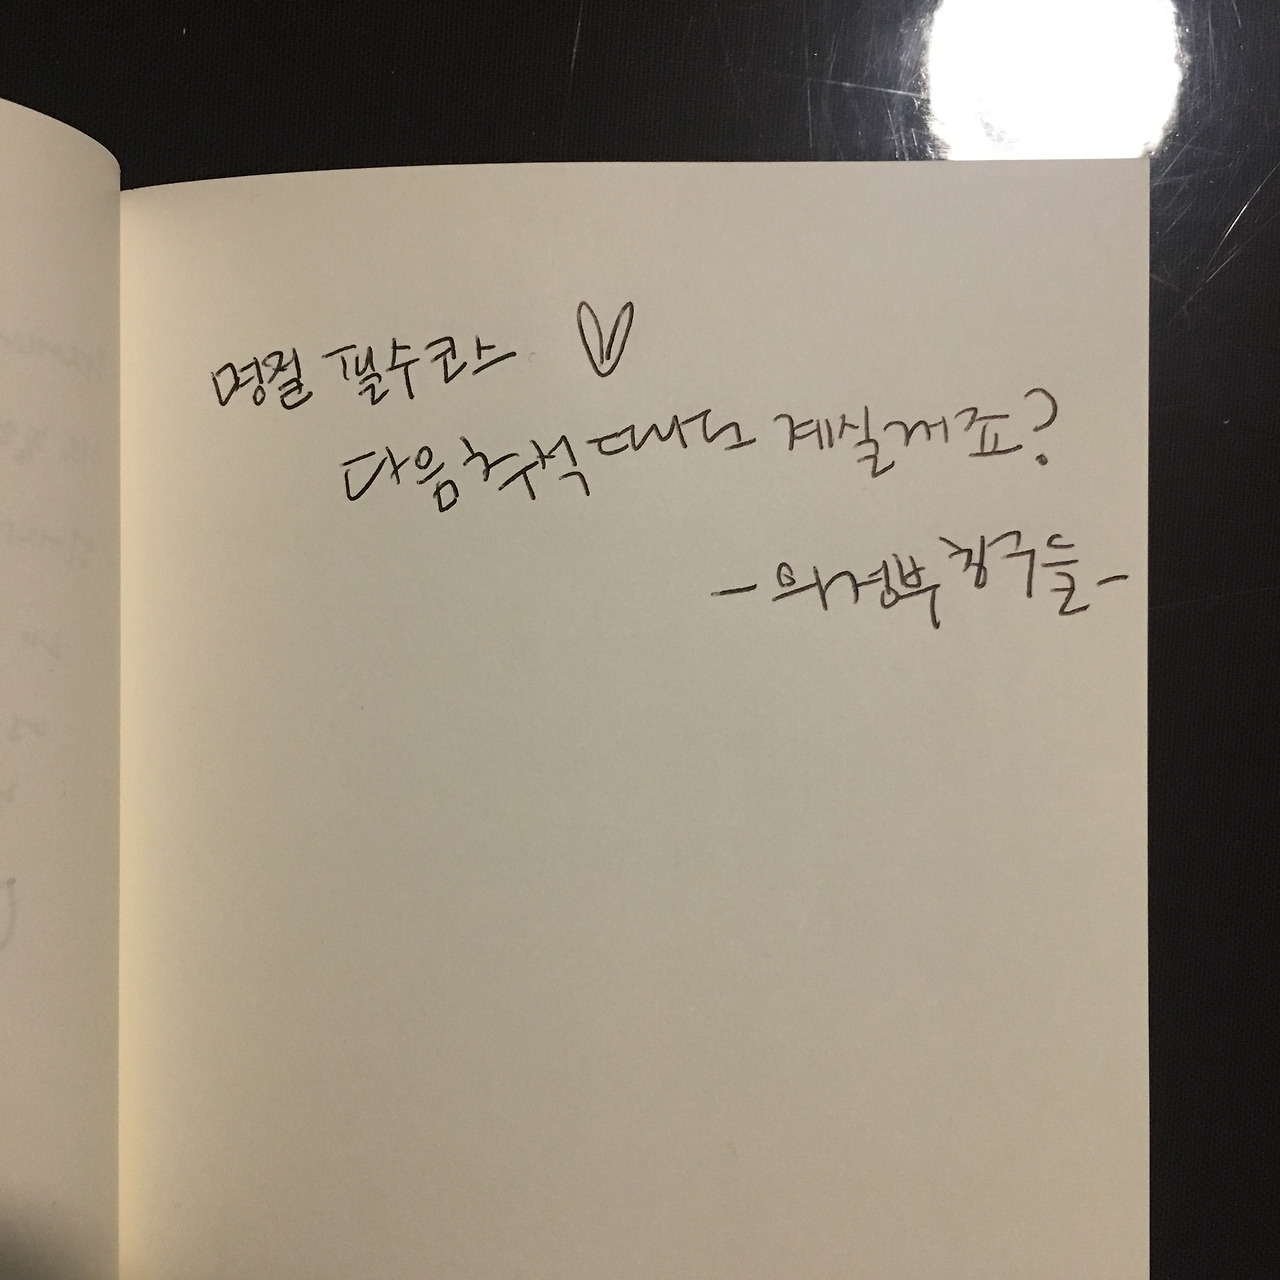 명절 필수코스 ♡
다음 추석 때도 계실꺼죠?
- 의정부 칭구들 -